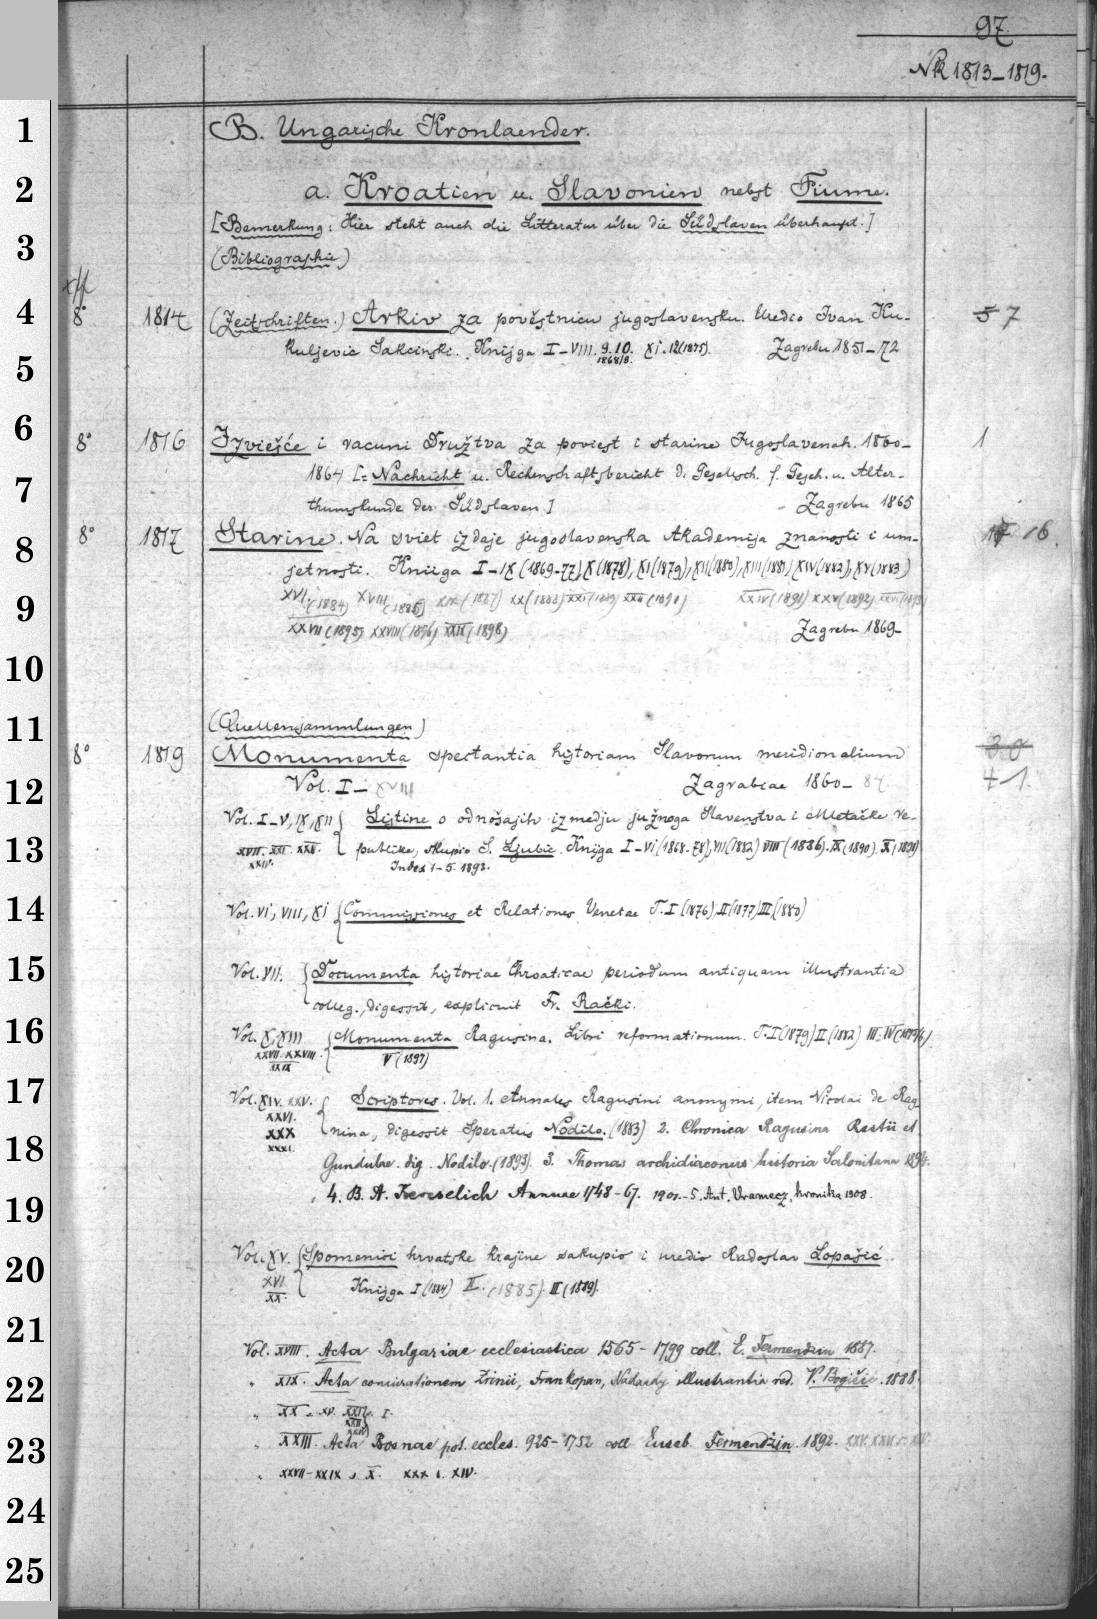 97.
Nk 1813-1819.
B. Ungarische Kronlaender.
a. Kroatien u. Slavonien nebst Fiume.
[Bemerkung: Hier steht auch die Litteratur über die Südslaven überhaupt.]
(Bibliographie)
8° 1814 (Zeitschriften.) Arkiv za pověstnicu jugoslavensku. Uredio Ivan Ku- 5 7
kuljevic Sakcinski. Knijga I-VIII. 9. 10. XI. 12(1875). Zagrebu 1851-72
1868/9.
8° 1816 Izviešće i racuni Družtva za poviest i starine Jugoslavenah. 1860- 1
1864 [= Nachricht u. Rechenschaftsbericht d. Gesellsch. f. Gesch. u. Alter-
thumskunde der Südslaven] Zagrebu 1865
8° 1817 Starine. Na sviet izdaje jugoslavenska Akademija znanosti i um- 16.
jetnosti. Kniiga I-IX (1869-77) X (1878), XI (1879), XII (1880), XIII (1881) XIV (1882), XV (1883)
XVI (1884) XVIII (1886) XIX (1887) XX (1888) XXI (1889) XXII (1890) XXIV (1891) XXV (1892) XXVI (1893)
XXVII (1895) XXVIII (1896) XXIX (1898) Zagrebu 1869-
(Quellensammlungen)
8° 1819 Monumenta spectantia historiam Slavorum meridionalium 30
Vol. I-XVIII Zagrabiae 1860-87 41.
Vol. I-V, IX, XII { Listine o odnošajih izmedju južnoga Slavenstva i Mletačke re-
XVII. XXI. XXII. publike, skupio S. Ljubić. Knijga I-VI (1868-78), VII (1882) VIII (1886). IX (1890). X (1891)
XXIV. Index 1-5. 1893.
Vol. VI, VIII, XI { Commissiones et Relationes Venetae T. I (1876), II (1877) III (1880)
Vol. VII. { Documenta historiae Chroaticae periodum antiquam illustrantia
colleg., digessit, explicuit Fr. Rački.
Vol. X, XIII { Monumenta Ragusina. Libri reformationum. T. I (1879) II (1882) III-IV (1895/6)
XXVII. XXVIII. V (1897)
XXIX
Vol. XIV. XXV. { Scriptores. Vol. 1. Annales Ragusini anonymi, item Nicolai de Rag-
XXVI.
nina, digessit Speratus Nodilo. (1883) 2. Chronica Ragusina Restii et
XXX
XXXI.
Gundulae. dig. Nodilo. (1893). 3. Thomas archidiaconus historia Salonitana 1894.
4. B. A. Kercselich Annuae 1748-67. 1901. - 5. Ant. Vramecz, kronika 1908.
Vol. XV. { Spomenici hrvatske krajine sakupio i uredio Radoslav Lopašić.
XVI. Knijga I (1884) II. (1885) III (1889).
XX.
Vol. XVIII. Acta Bulgariae ecclesiastica 1565-1799 coll. E. Fermendzin 1887.
" XIX. Acta coniurationem Zrinii, Frankopan, Nadasdy illustrantia red. V. Bogišić. 1888.
" XX = XV. XXI. I.
XXII
XXIV
" XXIII. Acta Bosnae pot. eccles. 925-1752 coll Euseb Fermendžin. 1892.
" XXVII-XXIX = X. XXX = XIV.